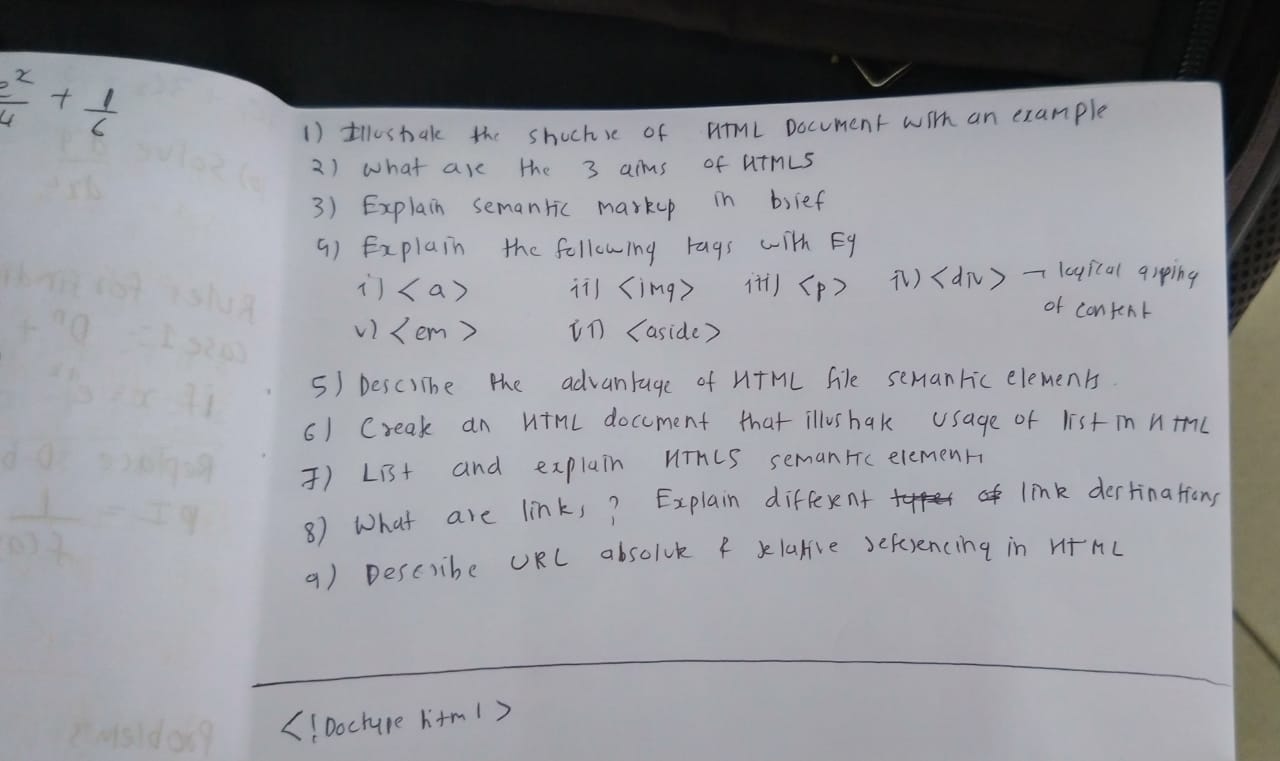 e^x/4 + 1/6
1) Illustrate the structure of HTML Document with an example
2) What are the 3 aims of HTML5
3) Explain semantic markup in brief
4) Explain the following tags with Eg
i) <a> ii) <img> iii) <p> iv) <div> → logical grping of content
v) <em> vi) <aside>
5) Describe the advantage of HTML file semantic elements.
6) Create an HTML document that illustrate usage of list in HTML
7) List and explain HTML5 semantic elements
8) What are links? Explain different types of link destinations
9) Describe URL absolute & relative referencing in HTML
<!Doctype html>